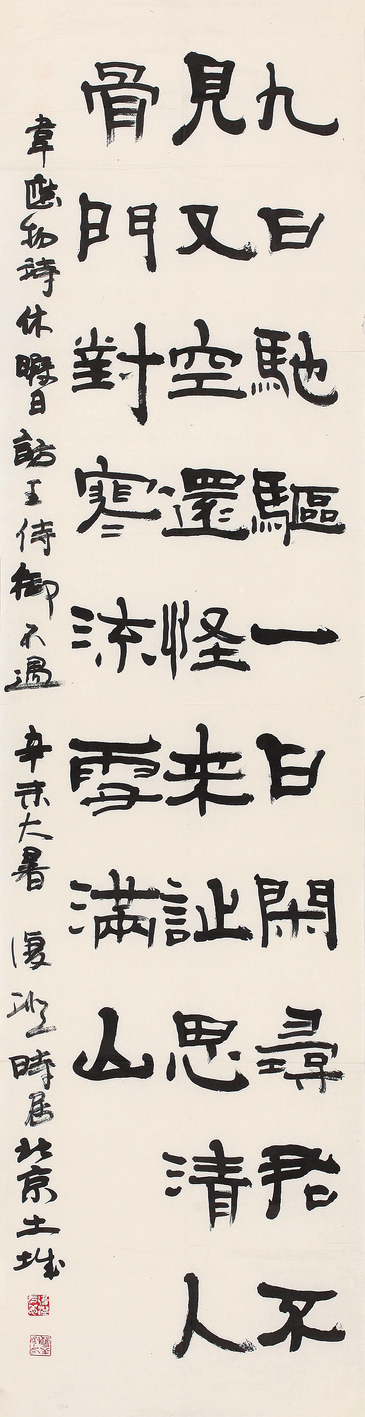 九日馳驅一日閑尋君不
見又空還怪来詩思清人
骨門對寒流雪滿山
韋應物詩休暇日訪王侍御不遇 辛未大暑 時居北京土城